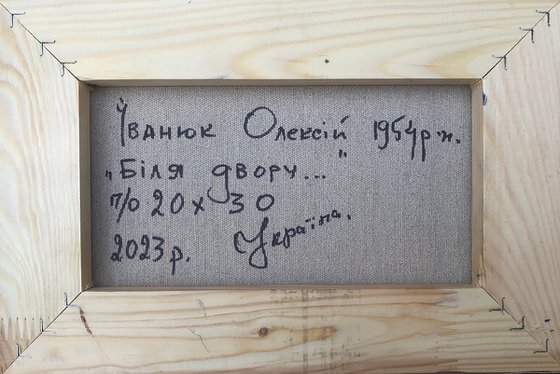 Іванюк Олексій 1954 р.н.
„Біля двору..."
п/о 20 х 30
2023 р. Україна.